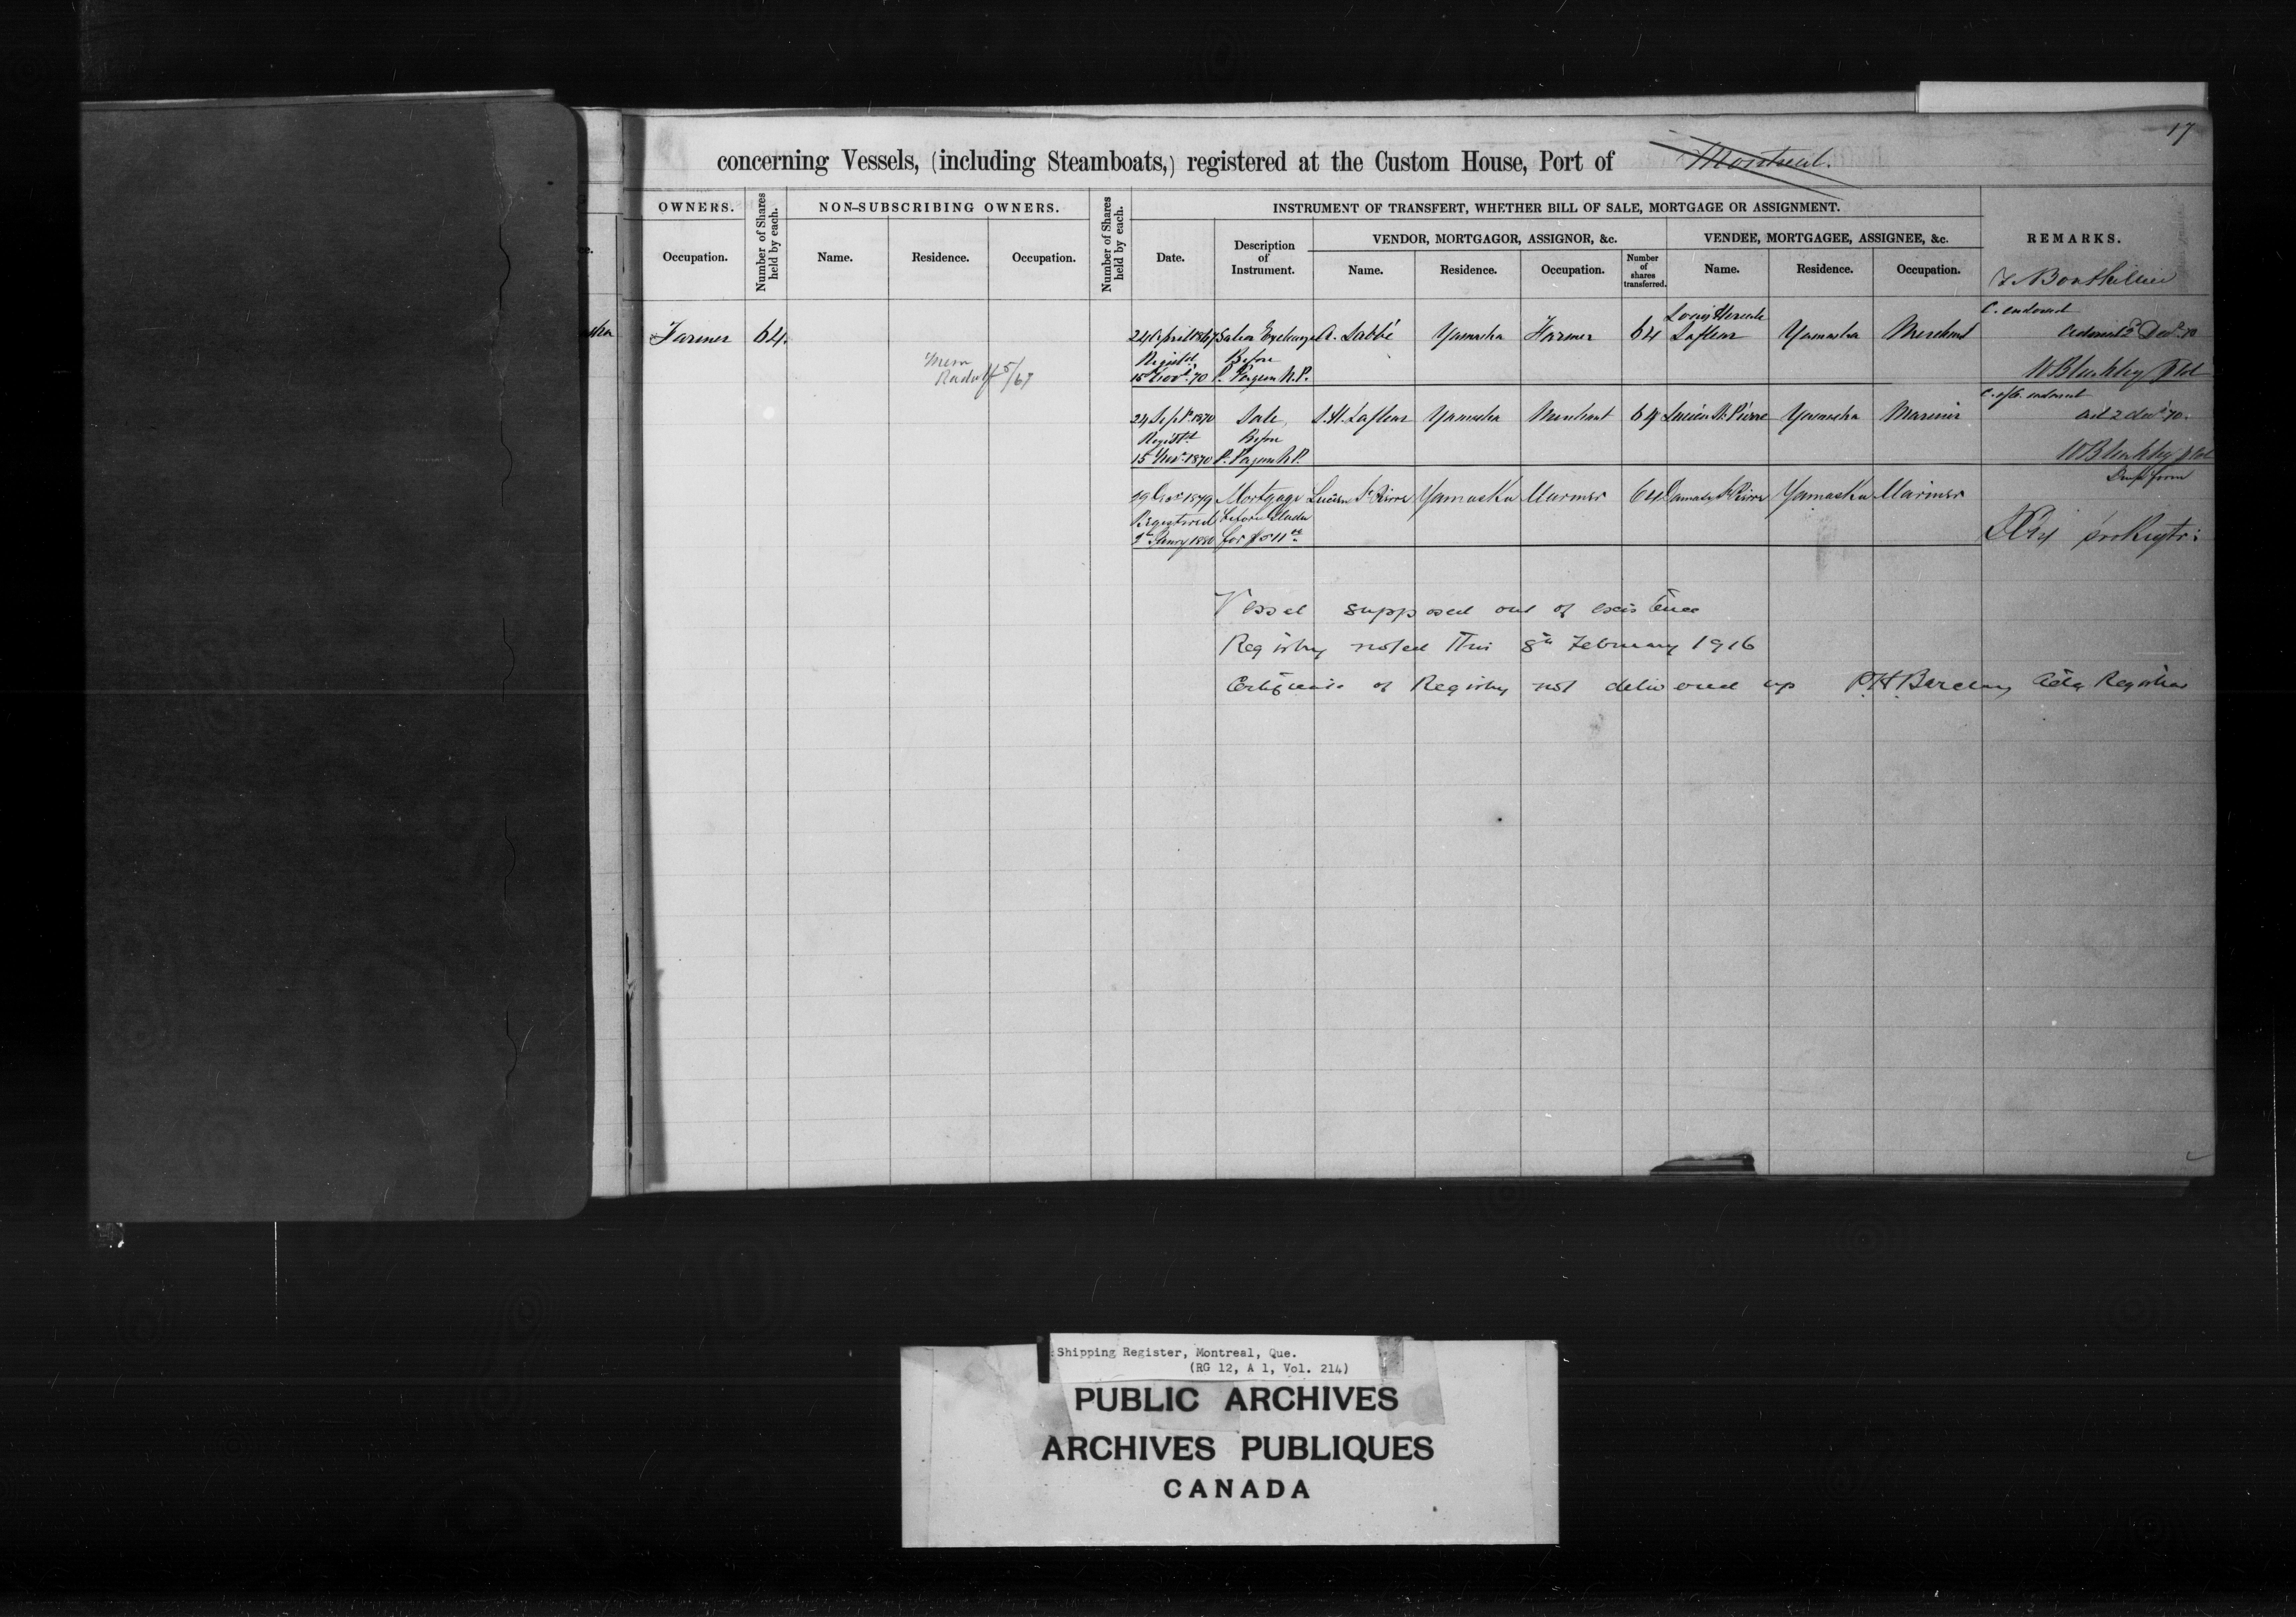 17
concerning Vessels, (including Steamboats,) registered at the Custom House, Port of Montreal.
OWNERS.
Number of Shares held by each.
NON-SUBSCRIBING OWNERS.
Number of Shares held by each.
INSTRUMENT OF TRANSFERT, WHETHER BILL OF SALE, MORTGAGE OR ASSIGNMENT.
REMARKS.
VENDOR, MORTGAGOR, ASSIGNOR, &c.
VENDEE, MORTGAGEE, ASSIGNEE, &c.
Occupation.
Name.
Residence.
Occupation.
Date.
Description of Instrument.
Name.
Residence.
Occupation.
Number of shares transferred.
Name.
Residence.
Occupation.
Bouthillier
Farmer 64.
24 April 1867 A. Labbé Yamaska Farmer 64 Louis Hercule Lafleur Yamaska Merchant
C. endorsed
Regist'd Before
15 Nov. 70 P. N.P.
W Bleakley
24 Sept. 1870 Sale L.H. Lafleur Yamaska Merchant 64 Lucien St Pierre Yamaska Mariner
C. of R. endorsed
2 Dec 70.
Regist'd Before
15 Nov. 1870 P. N.P.
W Bleakley
29 1879 Mortgage Lucien St Pierre Yamaska Mariner 64 Damase St Pierre Yamaska Mariner
Registered before
1880 for $511
Vessel supposed out of existence
Registry noted this 8th February 1916
Certificate of Registry not delivered up P.H. Barclay Actg Registrar
Shipping Register, Montreal, Que.
(RG 12, A 1, Vol. 214)
PUBLIC ARCHIVES
ARCHIVES PUBLIQUES
CANADA